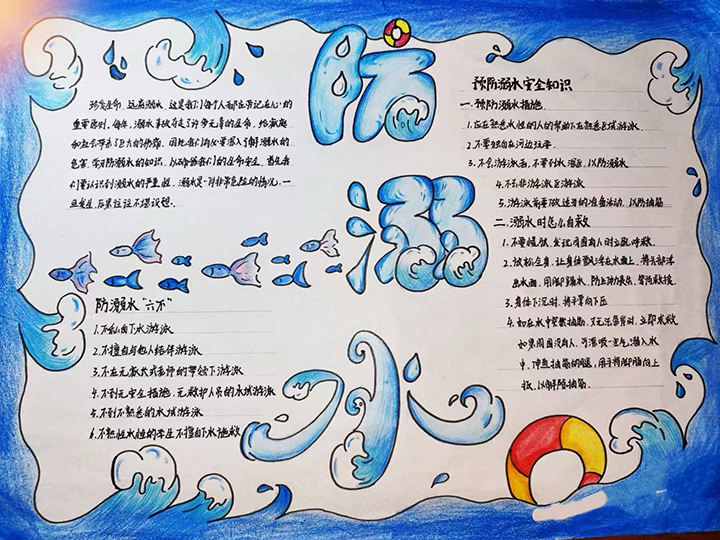 防
溺
水
珍爱生命,远离溺水,这是我们每个人都应牢记在心的
重要原则。每年,溺水事故夺走了许多无辜的生命,给家庭
和社会带来巨大的伤痛。因此我们有必要深入了解溺水的
危害,学习防溺水的知识,以确保我们的生命安全。首先我
们要认识到溺水的严重性,溺水是一种非常危险的情况,一
旦发生,后果往往不堪设想。
防溺水“六不”
1.不私自下水游泳
2.不擅自与他人结伴游泳
3.不在无家长或老师的带领下游泳
4.不到无安全措施、无救护人员的水域游泳
5.不到不熟悉的水域游泳
6.不熟性水性的学生不擅自下水施救
预防溺水安全知识
一.预防溺水措施
1.应在熟悉水性的人的帮助下在熟悉区域游泳
2.不要独自在河边玩耍
3.不会游泳者,不要到水深区,以防溺水
4.不去非游泳区游泳
5.游泳前要做适当的准备活动,以防抽筋
二.溺水时怎么自救
1.不要慌张,发现周围有人时立即呼救
2.放松全身,让身体飘浮在水面上,将头部浮
出水面,用脚踢水,防止体力丧失,等待救援
3.身体下沉时,将手掌向下压
4.如在水中突然抽筋,又无法靠岸,立即求救
如果周围没人,可深吸一口气潜入水
中,伸直抽筋的腿,用手将脚趾向上
扳,以解除抽筋